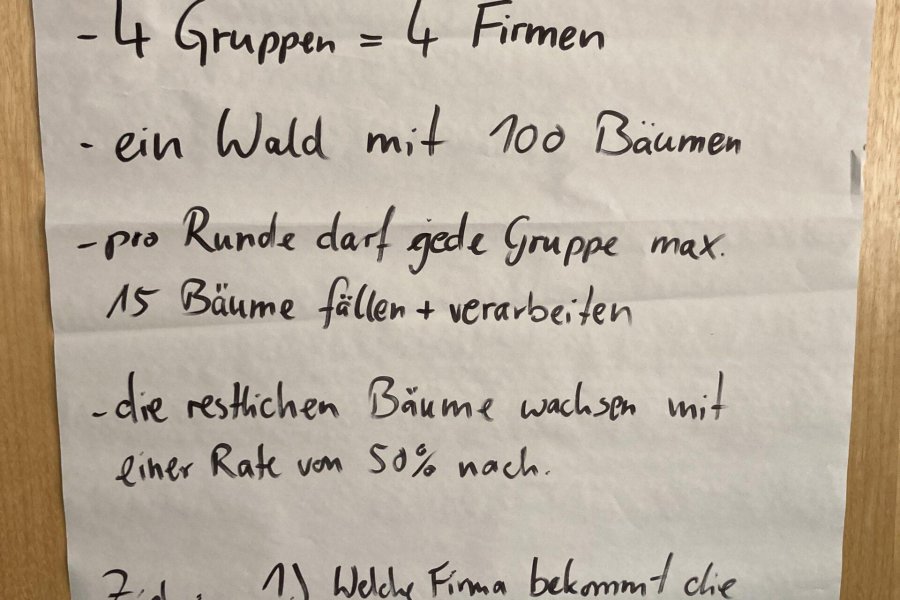 - 4 Gruppen = 4 Firmen
- ein Wald mit 100 Bäumen
- pro Runde darf jede Gruppe max.
15 Bäume fällen + verarbeiten
- die restlichen Bäume wachsen mit
einer Rate von 50% nach.
Ziel: 1) Welche Firma bekommt die